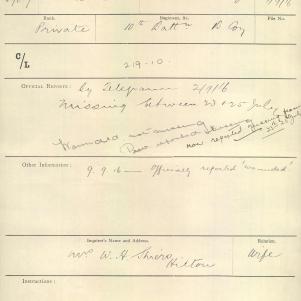 Rank
Regiment, &c.
File No.
Private
10th Battn
B Coy
C/L
219.10.
Official Reports:
by Telegram 2/9/16
Missing between 23 & 25 July
Wounded not missing
now reported missing
Other Information:
9.9.16 — Officially reported "wounded"
Inquirer's Name and Address.
Relation.
Mrs W. H. Shiers
Hilton
Wife
Instructions: